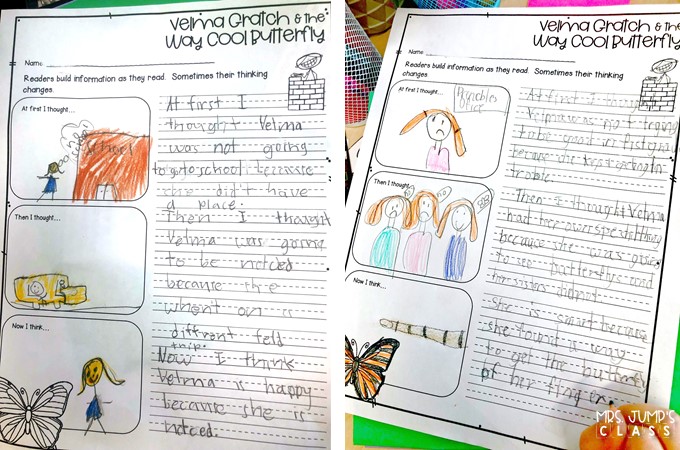 Velma Gratch & the
Way Cool Butterfly
Name:
Readers build information as they read. Sometimes their thinking
changes.
At first I thought...
Then I thought...
Now I think...
At first I
thought Velma
was not going
to go to school because
she didn't have
a place.
Then I thought
Velma was going
to be noticed
because she
went on
diffrent feld
trip.
Now I think
Velma is happy
because she is
noticed.
Velma Gratch & the
Way Cool Butterfly
Name:
Readers build information as they read. Sometimes their thinking
changes.
At first I thought...
Then I thought...
no
Now I think...
At first I thought
Velma was not going
to be good in
because she kept geting in
Then I thought Velma
had her own
because she was going
to see butterflys and
her sisters did not.
She is smart because
she found is way
to get the butterfly
of her finger.
MRS. JUMP'S
CLASS